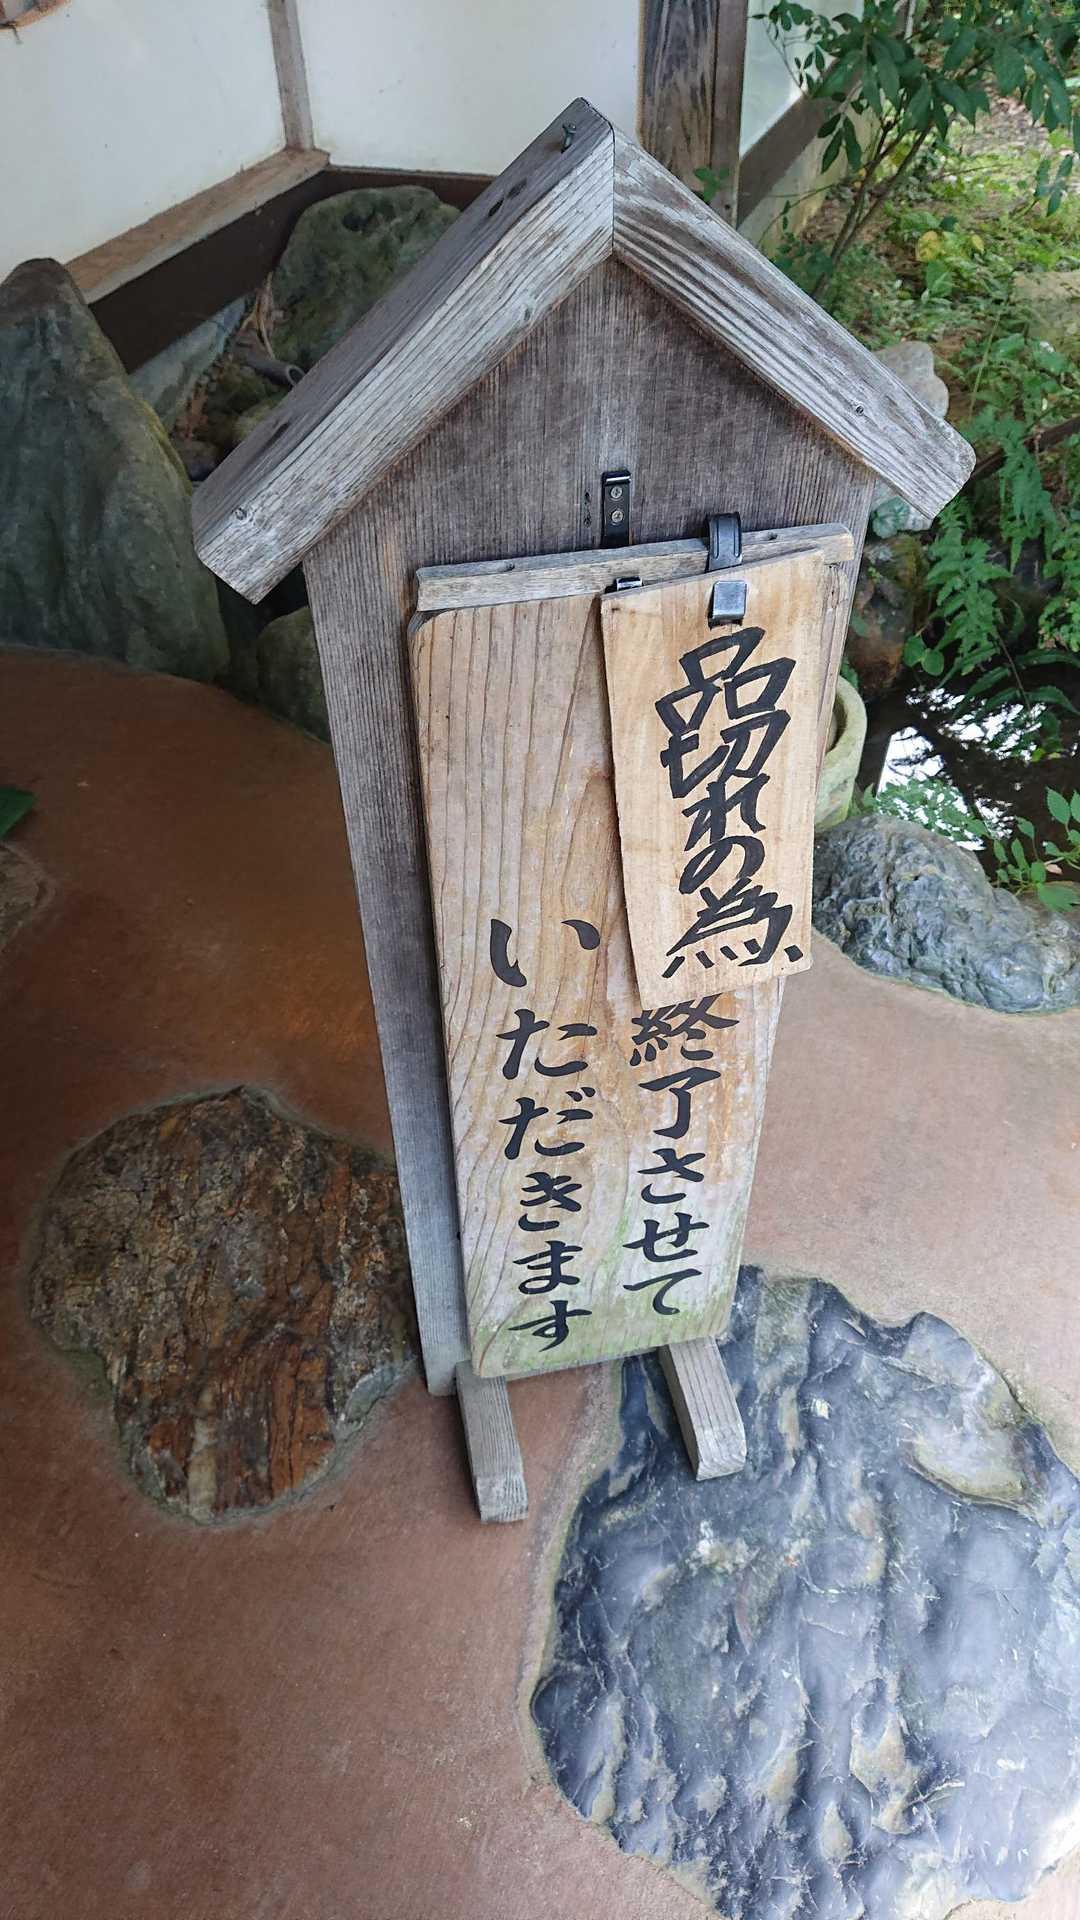 品切れの為
終了させて
いただきます